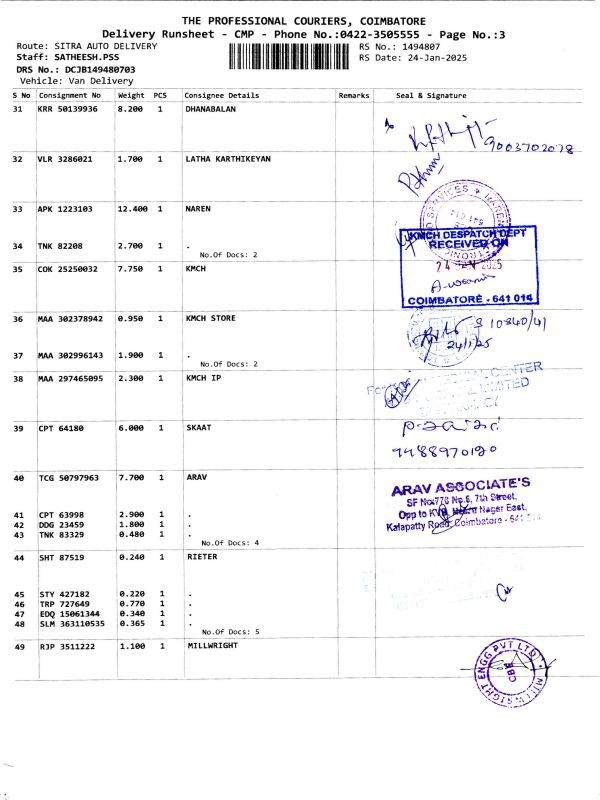 THE PROFESSIONAL COURIERS, COIMBATORE
Delivery Runsheet - CMP - Phone No.:0422-3505555 - Page No.:3
Route: SITRA AUTO DELIVERY
RS No.: 1494807
Staff: SATHEESH.PSS
RS Date: 24-Jan-2025
DRS No.: DCJB149480703
Vehicle: Van Delivery
S No Consignment No Weight PCS Consignee Details Remarks Seal & Signature
31 KRR 50139936 8.200 1 DHANABALAN
9003702078
32 VLR 3286021 1.700 1 LATHA KARTHIKEYAN
33 APK 1223103 12.400 1 NAREN
34 TNK 82208 2.700 1 .
No.Of Docs: 2
KMCH DESPATCH DEPT
RECEIVED ON
35 COK 25250032 7.750 1 KMCH
24 JAN 2025
COIMBATORE - 641 014
36 MAA 302378942 0.950 1 KMCH STORE
10840/41
24/1/25
37 MAA 302996143 1.900 1 .
No.Of Docs: 2
38 MAA 297465095 2.300 1 KMCH IP
CENTER
LIMITED
39 CPT 64180 6.000 1 SKAAT
9488970120
40 TCG 50797963 7.700 1 ARAV
ARAV ASSOCIATE'S
SF No:778 No.6, 7th Street,
Opp to KVB, Nehru Nagar East,
Kalapatty Road, Coimbatore - 641
41 CPT 63998 2.900 1 .
42 DDG 23459 1.800 1 .
43 TNK 83329 0.480 1 .
No.Of Docs: 4
44 SHT 87519 0.240 1 RIETER
45 STY 427182 0.220 1 .
46 TRP 727649 0.770 1 .
47 EDQ 15061344 0.340 1 .
48 SLM 363110535 0.365 1 .
No.Of Docs: 5
49 RJP 3511222 1.100 1 MILLWRIGHT
MILLWRIGHT ENGG PVT LTD
CBE